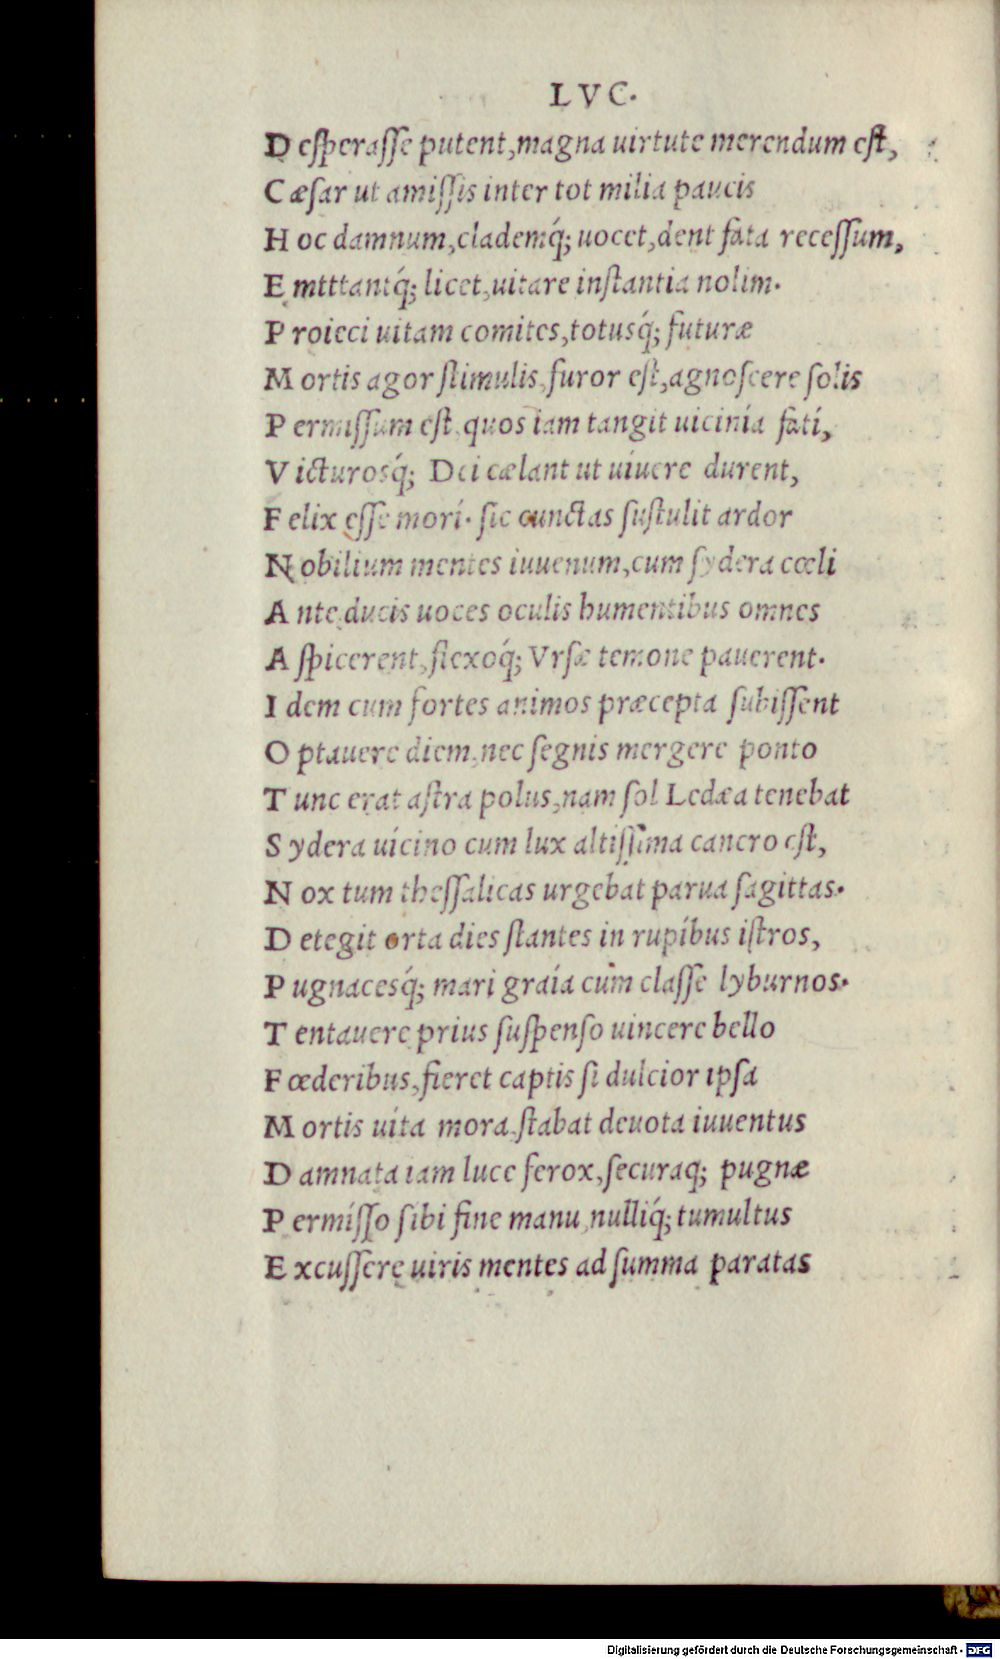 LVC.
D eſperaſſe putent, magna uirtute merendum eſt,
C æſar ut amiſſis inter tot milia paucis
H oc damnum, clademq́; uocet, dent fata receſſum,
E mtttantq́; licet, uitare inſtantia nolim.
P roieci uitam comites, totusq́; futuræ
M ortis agor ſtimulis, furor eſt, agnoſcere ſolis
P ermiſſum eſt, quos iam tangit uicinía fatí,
V icturosq́; Dei cælant ut uiuere durent,
F elix eſſe morí. ſic cunctas ſuſtulit ardor
N obilium mentes iuuenum, cum ſydera cœli
A nte ducis uoces oculis humentibus omnes
A ſpicerent, flexoq́; Vrſæ temone pauerent.
I dem cum fortes animos præcepta ſubiſſent
O ptauere diem, nec ſegnis mergere ponto
T unc erat aſtra polus, nam ſol Ledæa tenebat
S ydera uícino cum lux altiſſima cancro eſt,
N ox tum theſſalicas urgebat parua ſagittas.
D etegit orta dies ſtantes in rupíbus iſtros,
P ugnacesq́; mari graía cum claſſe lyburnos.
T entauere prius ſuſpenſo uincere bello
F œderibus, fieret captis ſi dulcior ipſa
M ortis uíta mora, ſtabat deuota iuuentus
D amnata iam luce ferox, ſecuraq; pugnæ
P ermíſſo ſibi fine manu, nulliq́; tumultus
E xcuſſere uiris mentes ad ſumma paratas
Digitalisierung gefördert durch die Deutsche Forschungsgemeinschaft - DFG